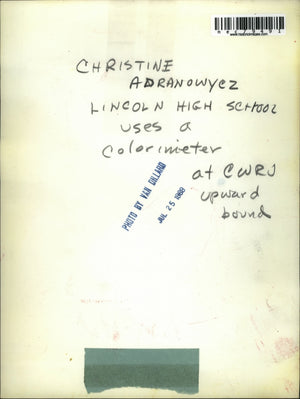 CHRISTINE
ADRANOWYCZ
LINCOLN HIGH SCHOOL
USES a
colorimeter
at CWRU
upward
bound
PHOTO BY VAN DILLARD
JUL 25 1988